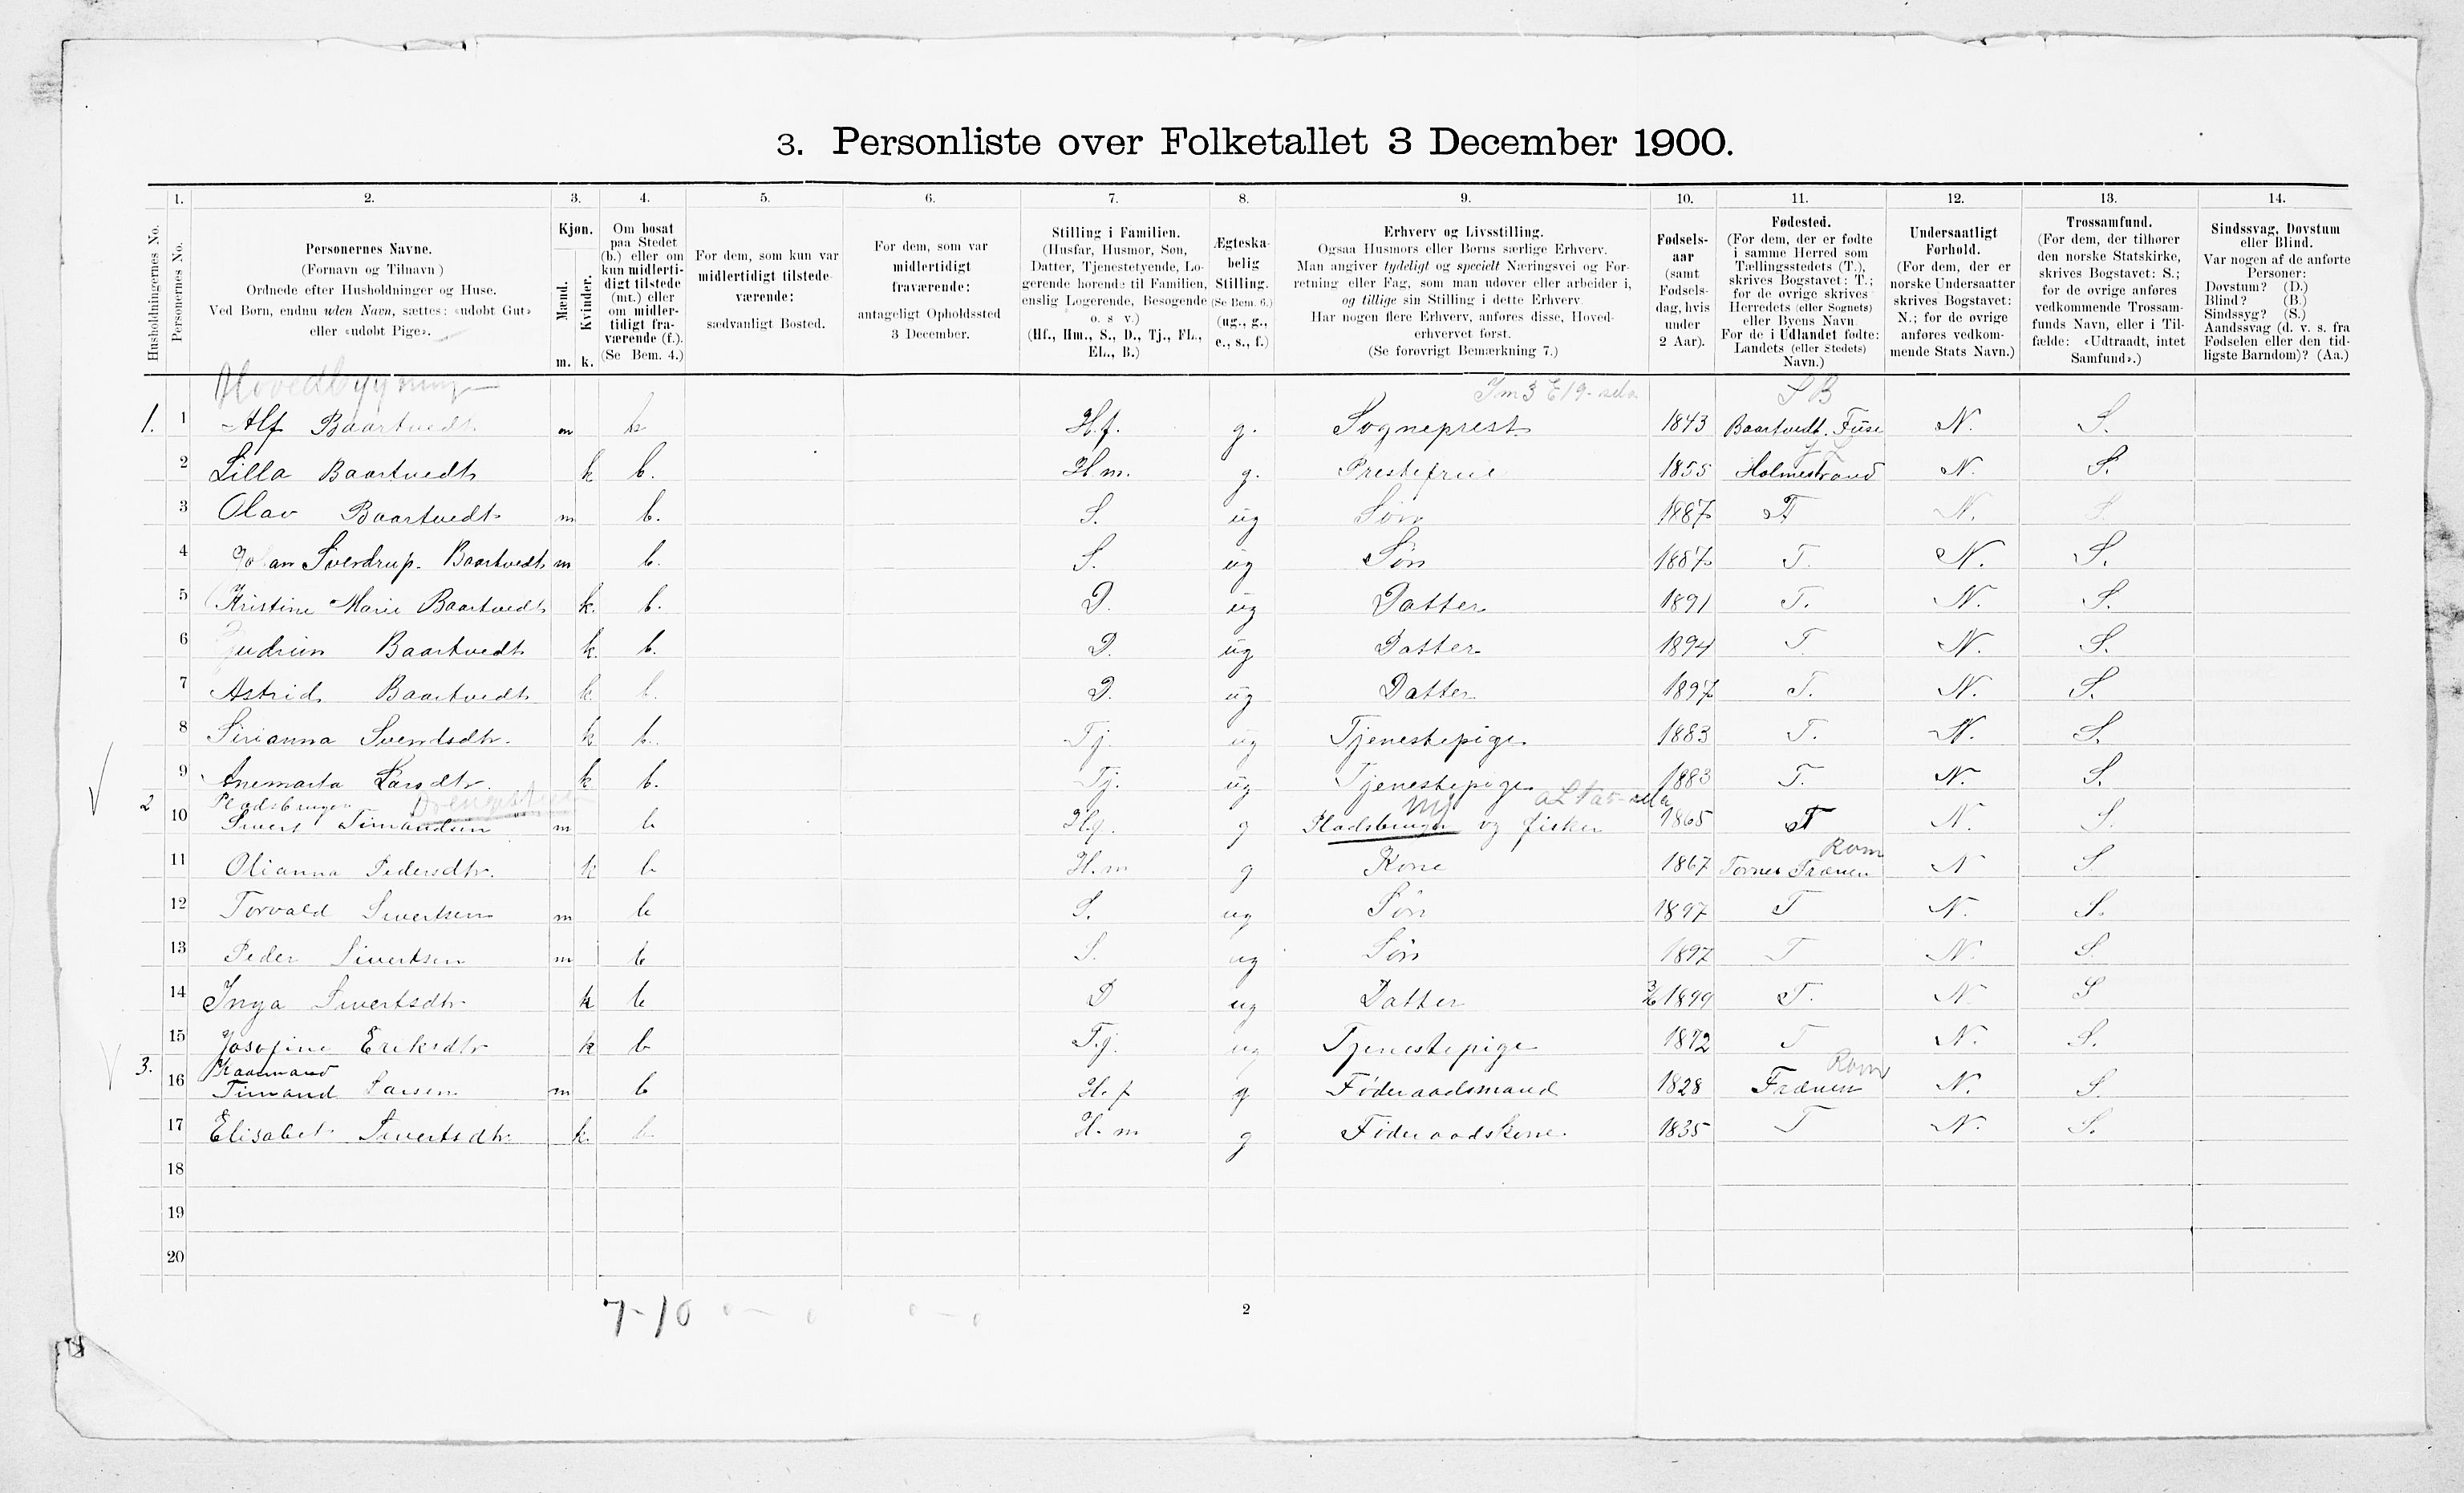 3. Personliste over Folketallet 3 December 1900.
1. 2. 3. 4. 5. 6. 7. 8. 9. 10. 11. 12. 13. 14.
Husholdningernes No.
Personernes No.
Personernes Navne.
(Fornavn og Tilnavn)
Ordnede efter Husholdninger og Huse.
Ved Børn, endnu uden Navn, sættes: «udøbt Gut»
eller «udøbt Pige».
Kjøn.
Mænd.
Kvinder.
m. k.
Om bosat
paa Stedet
(b.) eller om
kun midlerti-
digt tilstede
(mt.) eller
om midler-
tidigt fra-
værende (f.).
(Se Bem. 4.)
For dem, som kun var
midlertidigt tilstede-
værende:
sædvanligt Bosted.
For dem, som var
midlertidigt
fraværende:
antageligt Opholdssted
3 December.
Stilling i Familien.
(Husfar, Husmor, Søn,
Datter, Tjenestetyende, Lo-
gerende hørende til Familien,
enslig Logerende, Besøgende
o. s. v.)
(Hf., Hm., S., D., Tj., FL.,
EL., B.)
Ægteska-
belig
Stilling.
(Se Bem. 6.)
(ug., g.,
e., s., f.)
Erhverv og Livsstilling.
Ogsaa Husmors eller Børns særlige Erhverv.
Man angiver tydeligt og specielt Næringsvei og For-
retning eller Fag, som man udøver eller arbeider i,
og tillige sin Stilling i dette Erhverv.
Har nogen flere Erhverv, anføres disse, Hoved-
erhvervet først.
(Se forøvrigt Bemærkning 7.)
Fødsels-
aar
(samt
Fødsels-
dag, hvis
under
2 Aar).
Fødested.
(For dem, der er fødte
i samme Herred som
Tællingsstedets (T.),
skrives Bogstavet: T.;
for de øvrige skrives
Herredets (eller Sognets)
eller Byens Navn
For de i Udlandet fødte:
Landets (eller Stedets)
Navn.)
Undersaatligt
Forhold.
(For dem, der er
norske Undersaatter
skrives Bogstavet:
N.; for de øvrige
anføres vedkom-
mende Stats Navn.)
Trossamfund.
(For dem, der tilhører
den norske Statskirke,
skrives Bogstavet: S.;
for de øvrige anføres
vedkommende Trossam-
funds Navn, eller i Til-
fælde: «Udtraadt, intet
Samfund».)
Sindssvag, Døvstum
eller Blind.
Var nogen af de anførte
Personer:
Døvstum? (D.)
Blind? (B.)
Sindssyg? (S.)
Aandssvag (d. v. s. fra
Fødselen eller den tid-
ligste Barndom)? (Aa.)
Hovedbygning
S B
1. 1 Alf Baartvedt m b H.f. g. Sogneprest 1843 Baartvedt. Fuse N. S.
2 Lilla Baartvedt k b. H.m. g. Prestefrue 1855 Holmestrand N. S.
3 Olav Baartvedt m b. S. ug Søn 1887 T N. S
4 Johan Sverdrup. Baartvedt m b. S. ug Søn 1887 T. N. S.
5 Kristine Marie Baartvedt k. b. D. ug Datter 1891 T. N. S.
6 Gudrun Baartvedt k. b. D. ug Datter 1894 T. N. S.
7 Astrid Baartvedt k. b. D. ug Datter 1897 T. N. S.
8 Sirianna Svendsdtr. k b. Tj. ug Tjenestepige 1883 T. N. S.
9 Anemarta Larsdtr. k b. Tj. ug Tjenestepige 1883 T. N. S.
Pladsbruger
2 10 Sivert Timandsen m b Hf. g Pladsbruger og fisker 1865 T N. S
Rom
11 Olianna Pedersdtr. k b H.m g Kone 1867 Tornes Frænen N S
12 Torvald Sivertsen m b S. ug Søn 1897 T N. S.
13 Peder Sivertsen m b S. ug Søn 1897 T N. S
14 Inga Sivertsdtr k b D ug Datter 3/6 1899 T. N S
15 Josefine Eriksdtr k b Tj. ug Tjenestepige 1872 T N. S.
Kaarmand Rom
3. 16 Timand Larsen m b H.f g Føderaadsmand 1828 Frænen N. S.
17 Elisabet Sivertsdtr. k. b H.m g Føderaadskone. 1835 T N. S.
18
19
20
7-10 0 – 0 0 – 0
2